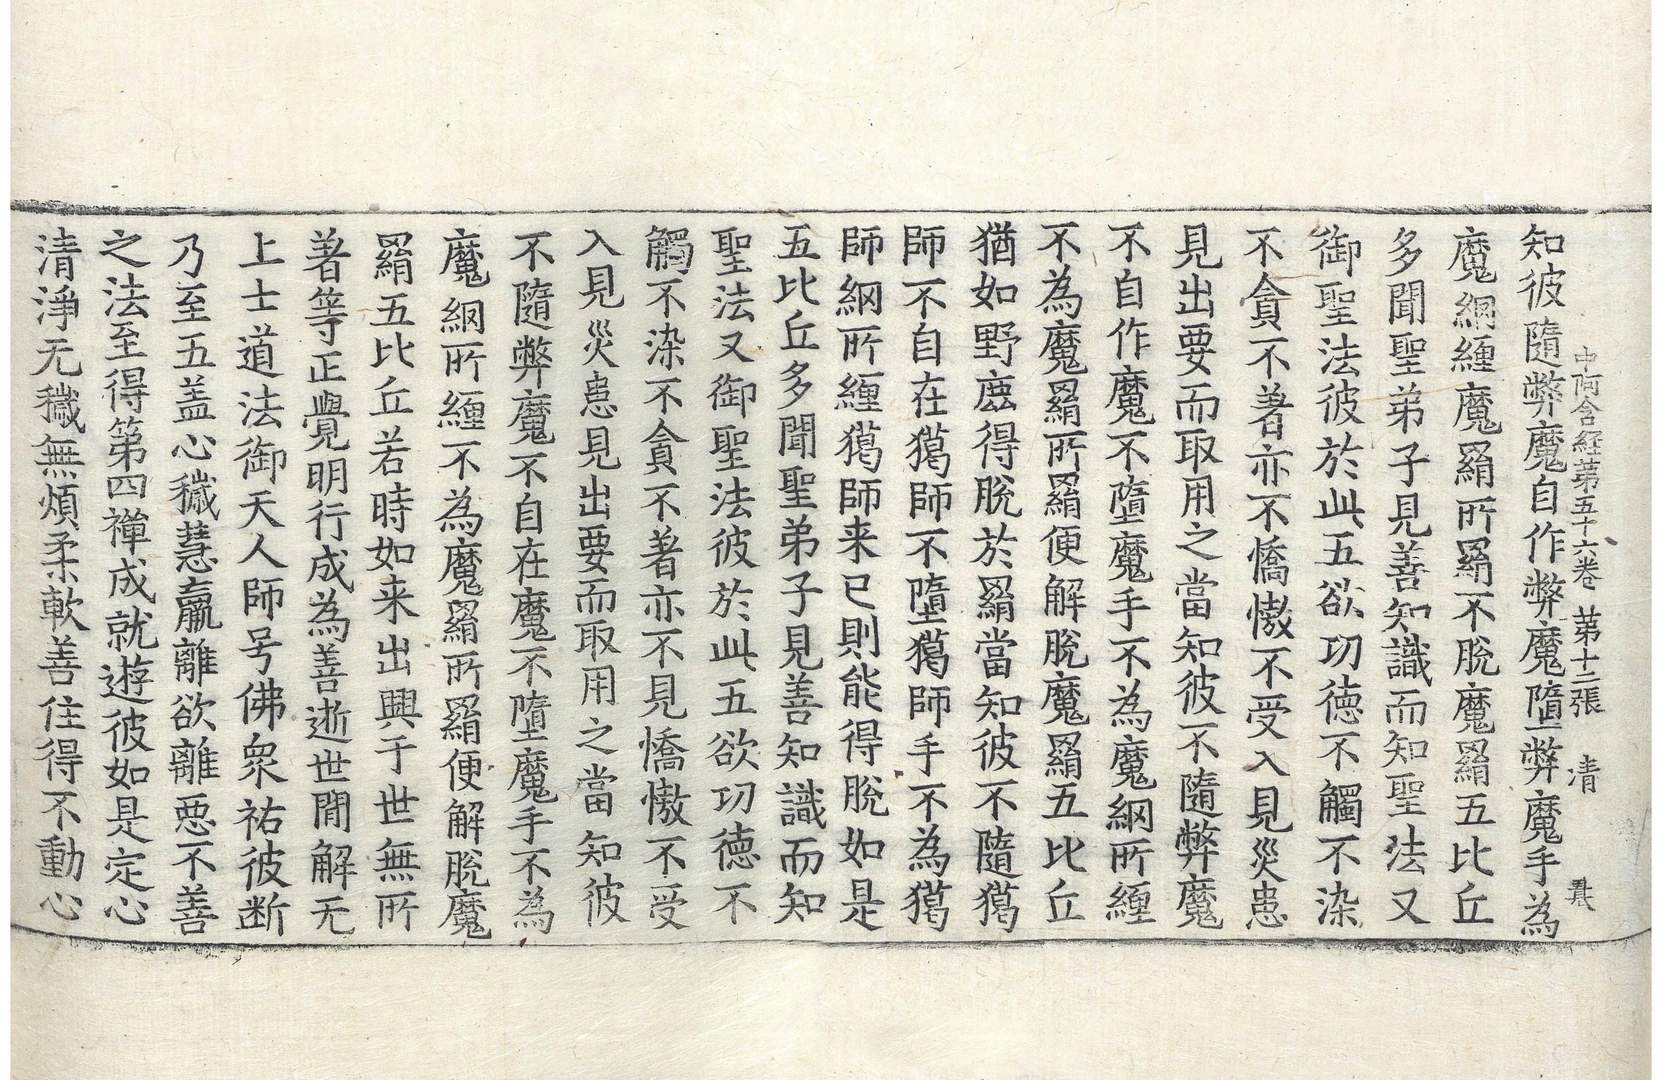 中阿含経苐五十六卷 苐十二張 清
知彼隨弊魔自作弊魔墮弊魔手為
魔網纏魔羂所羂不脫魔羂五比丘
多聞聖弟子見善知識而知聖法又
御聖法彼於此五欲㓛德不觸不染
不貪不著亦不憍慠不受入見災患
見出要而取用之當知彼不隨弊魔
不自作魔不墮魔手不為魔網所纏
不為魔羂所羂便解脫魔羂五比丘
猶如野麈得脫於羂當知彼不隨獦
師不自在獦師不墮獦師手不為獦
師網所纏獦師来已則能得脫如是
五比丘多聞聖弟子見善知識而知
聖法又御聖法彼於此五欲㓛德不
觸不染不貪不著亦不見憍慠不受
入見災患見出要而取用之當知彼
不隨弊魔不自在魔不墮魔手不為
魔網所纏不為魔羂所羂便解脫魔
羂五比丘若時如来出興于世無所
著等正覺明行成為善逝世間解无
上士道法御天人師号佛衆祐彼断
乃至五盖心穢慧羸離欲離惡不善
之法至得第四禪成就遊彼如是定心
清淨无穢無煩柔軟善住得不動心